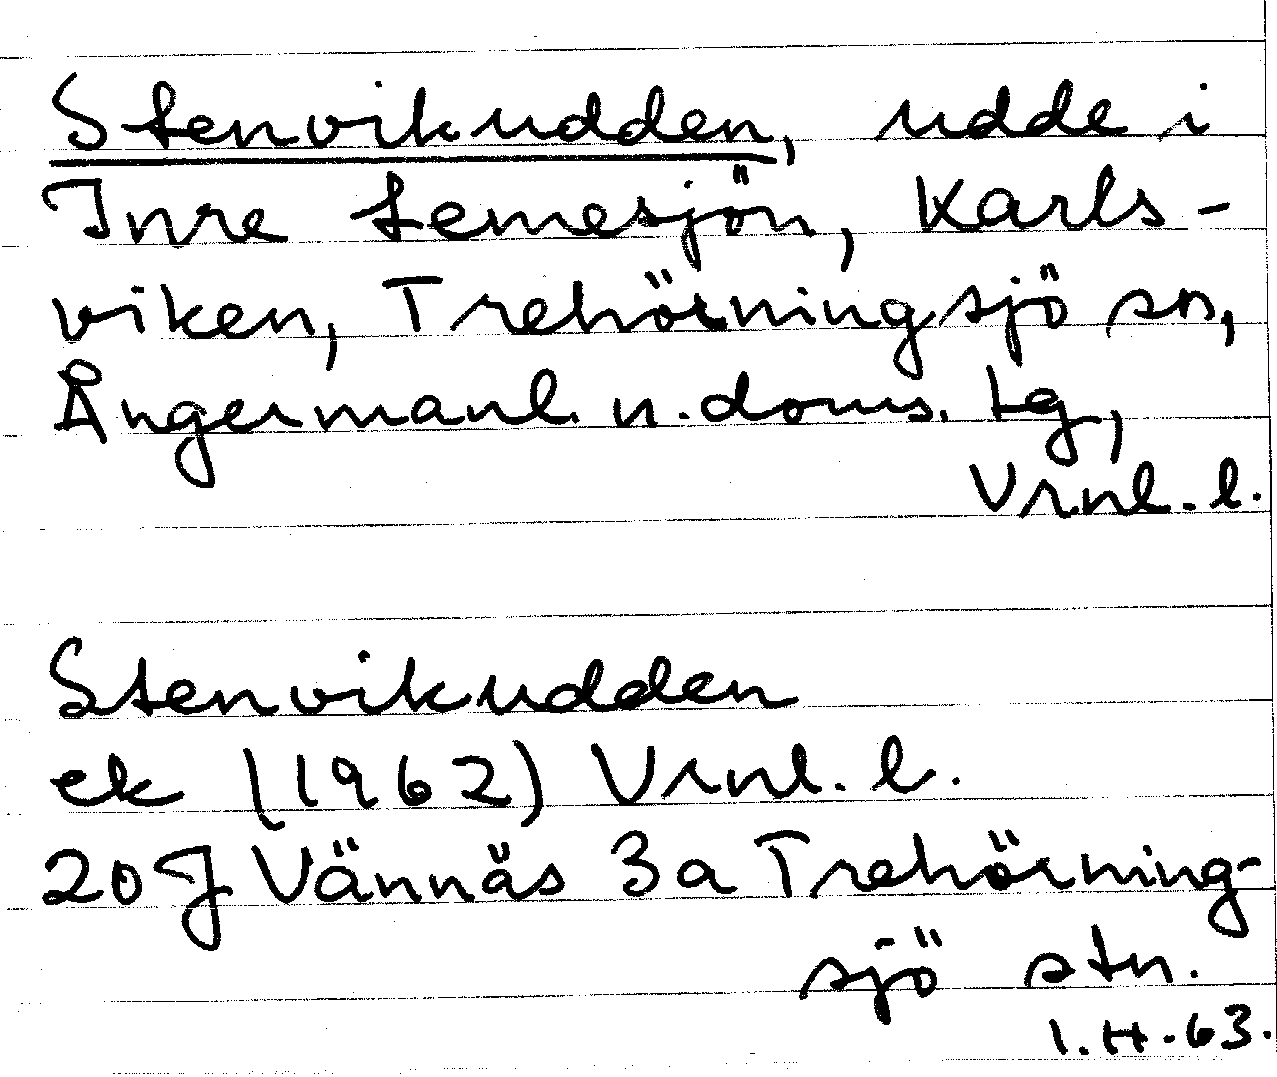 Stenvikudden, udde i
Inre Lemesjön, Karls-
viken, Trehörningsjö sn,
Ångermanl. n. doms. tg,
Vrnl. l.
Stenvikudden
ek (1962) Vrnl. l.
20 J Vännäs 3a Trehörning-
sjö stn.
1.H.63.